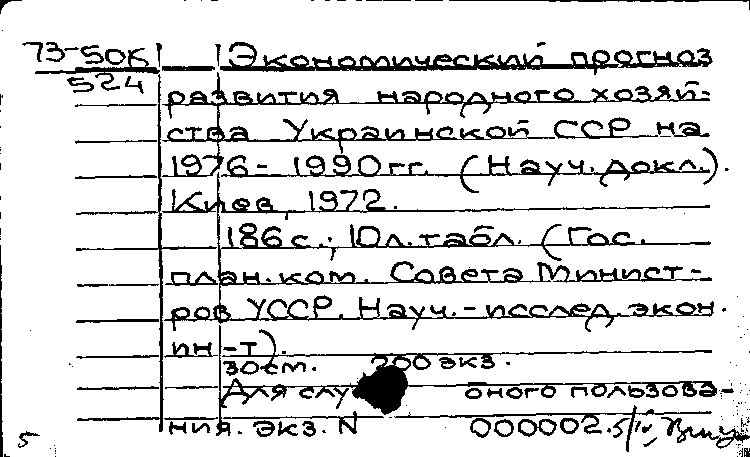 73-50К Экономический прогноз
524
развития народного хозяй-
ства Украинской ССР на
1976- 1990 гг. (Науч. докл.).
Киев, 1972.
186 с.; 10 л. табл. (Гос.
план. ком. Совета Минист-
ров УССР. Науч.-исслед. экон.
ин-т).
30 ст. 200 экз.
Для слу обного пользова-
ния. экз. N 000002.
5